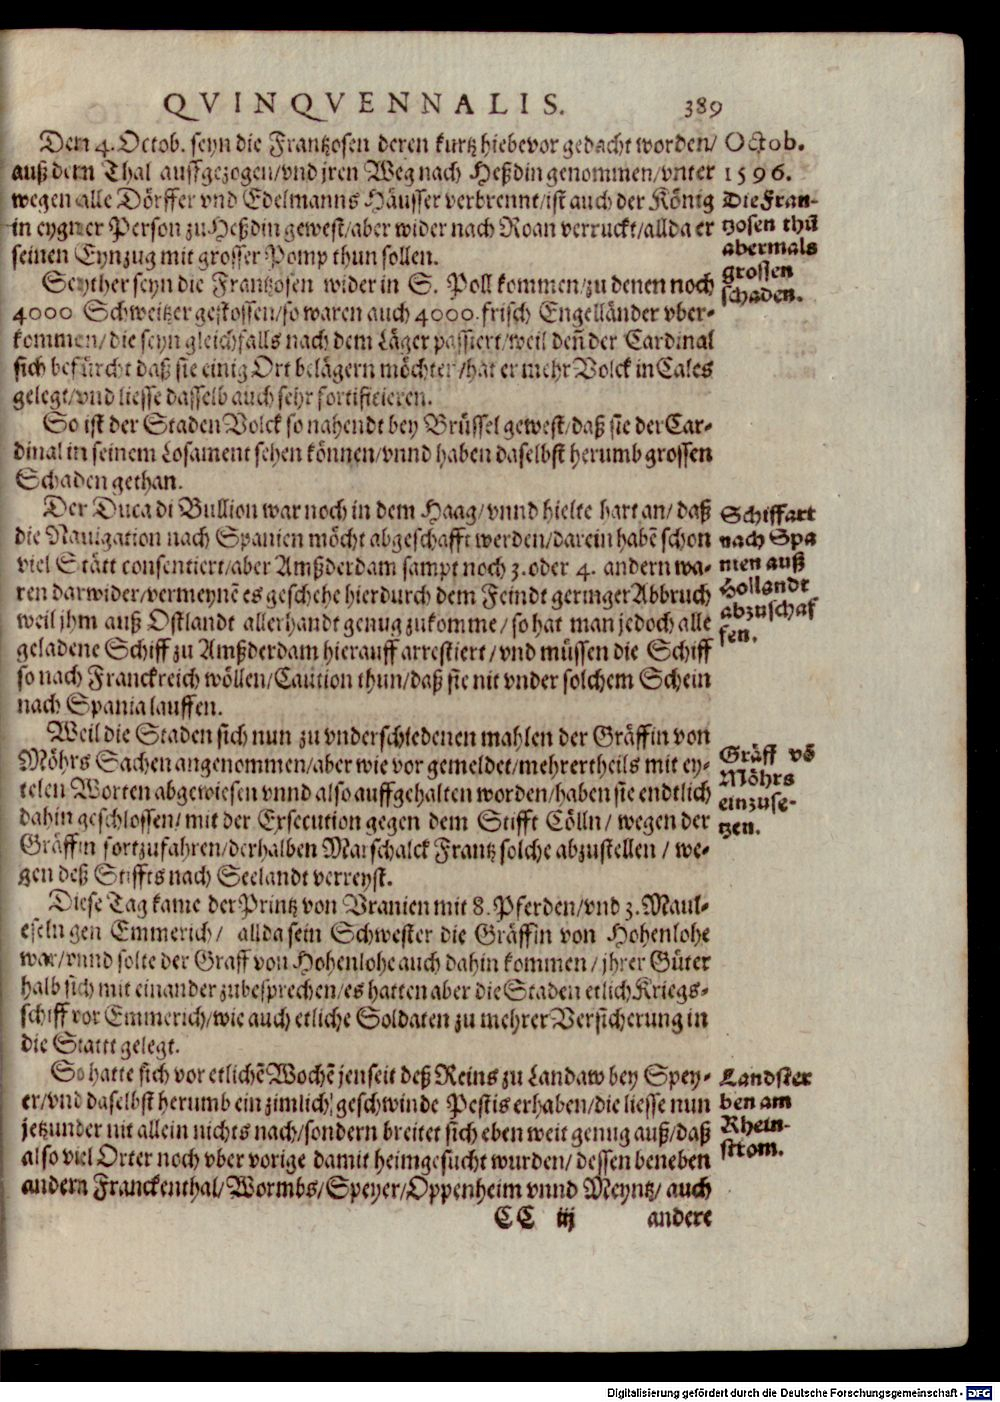 QVINQVENNALIS. 389
Dem 4. Octob. seyn die Frantzosen deren kurtz hiebevor gedacht worden/
auß dem Thal aussgezogen/vnd jren Weg nach Heßdin genommen/vnter
wegen alle Dörffer vnd Edelmanns Häusser verbrennt/ist auch der König
in eygner Person zu Heßdin gewest/aber wider nach Roan verruckt/allda er
seinen Eynzug mit grosser Pomp thun sollen.
Octob.
1596.
Die Fran-
tzosen thū
abermals
grossen
schaden.
Seyther seyn die Frantzosen wider in S. Poll kommen/zu denen noch
4000 Schweitzer gestossen/so waren auch 4000. frisch Engelländer vber-
kommen/die seyn gleichfalls nach dem Läger passiert/weil deñ der Cardinal
sich befürcht daß sie einig Ort belägern möchten/hat er mehr Volck in Cales
gelegt/vnd liesse dasselb auch sehr fortificieren.
So ist der Staden Volck so nahendt bey Brüssel gewest/daß sie der Car-
dinal in seinem Losament sehen können/vnnd haben daselbst herumb grossen
Schaden gethan.
Der Duca di Bullion war noch in dem Haag/vnnd hielte hart an/daß
die Nauigation nach Spanien möcht abgeschafft werden/darein habē schon
viel Stätt consentiert/aber Amßderdam sampt noch 3. oder 4. andern wa-
ren darwider/vermeynē es geschehe hierdurch dem Feindt geringer Abbruch
weil jhm auß Ostlandt allerhandt genug zukomme/so hat man jedoch alle
geladene Schiff zu Amßderdam hierauff arrestiert/vnd müssen die Schiff
so nach Franckreich wöllen/Caution thun/daß sie nit vnder solchem Schein
nach Spania lauffen.
Schiffart
nach Spa
nien auß
Hollandt
abzuschaf
fen.
Weil die Staden sich nun zu vnderschiedenen mahlen der Gräffin von
Möhrs Sachen angenommen/aber wie vor gemeldet/mehrertheils mit ey-
telen Worten abgewiesen vnnd also auffgehalten worden/haben sie endtlich
dahin geschlossen/mit der Exsecution gegen dem Stifft Cölln/wegen der
Gräffin fortzufahren/derhalben Marschalck Frantz solche abzustellen/we-
gen deß Stiffts nach Seelandt verreyst.
Gräff vō
Möhrs
einzuse-
tzen.
Diese Tag kame der Printz von Vranien mit 8. Pferden/vnd 3. Maul-
eseln gen Emmerich/ allda sein Schwester die Gräffin von Hohenlohe
war/vnnd solte der Graff von Hohenlohe auch dahin kommen/jhrer Güter
halb sich mit einander zubesprechen/es hatten aber die Staden etlich Kriegs-
schiff vor Emmerich/wie auch etliche Soldaten zu mehrer Versicherung in
die Statt gelegt.
So hatte sich vor etlichē Wochē jenseit deß Reins zu Landaw bey Spey-
er/vnd daselbst herumb ein zimlich geschwinde Pestis erhaben/die liesse nun
jetzunder nit allein nichts nach/sondern breitet sich eben weit genug auß/daß
also viel Orter noch vber vorige damit heimgesucht wurden/dessen beneben
andern Franckenthal/Wormbs/Speyer/Oppenheim vnnd Meyntz/auch
Landster
ben am
Rhein-
strom.
CC iij andere
Digitalisierung gefördert durch die Deutsche Forschungsgemeinschaft - DFG